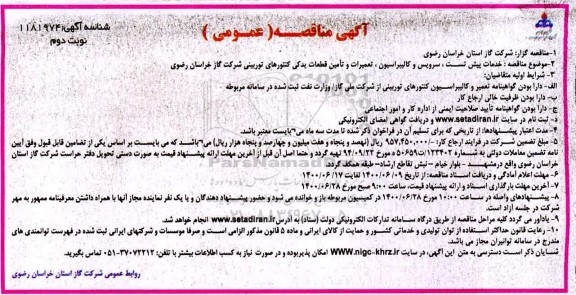 شناسه آگهی: ۱۱۸۱۹۷۴
نوبت دوم
آگهی مناقصه ( عمومی )
۱-مناقصه گزار: شرکت گاز استان خراسان رضوی
۲-موضوع مناقصه : خدمات پیش تست ، سرویس و کالیبراسیون ، تعمیرات و تأمین قطعات یدکی کنتورهای توربینی شرکت گاز خراسان رضوی
۳- شرایط اولیه متقاضیان:
الف- دارا بودن گواهینامه تعمیر و کالیبراسیون کنتورهای توربینی از شرکت ملی گاز/ وزارت نفت ثبت شده در سامانه مربوطه
ب- دارا بودن ظرفیت خالی ارجاع کار
ج- دارا بودن گواهینامه تأیید صلاحیت ایمنی از اداره کار و امور اجتماعی
د- ثبت نام در سایت www.setadiran.ir و دریافت گواهی امضای الکترونیکی
۴- مدت اعتبار پیشنهادها: از تاریخی که برای تسلیم آن در فراخوان ذکر شده تا مدت سه ماه می¬بایست معتبر باشد.
۵- مبلغ تضمین شرکت در فرایند ارجاع کار: ۹۵۷,۴۵۰,۰۰۰/- ریال (نهصد و پنجاه و هفت میلیون و چهارصد و پنجاه هزار ریال) می¬باشد که می بایست بر اساس یکی از تضامین قابل قبول وفق آیین
نامه تضمین معاملات دولتی به شماره ۱۲۳۴۰۲/ت۵۰۶۵۹ه مورخ ۹۴/۰۹/۲۲ تهیه گردد و حتما اصل آن قبل از آخرین مهلت ارائه پیشنهاد قیمت به صورت دستی تحویل دفتر حراست شرکت گاز استان
خراسان رضوی واقع در مشهد - بلوار خیام - نبش تقاطع ارشاد- طبقه همکف گردد.
۶- مهلت اعلام آمادگی و دریافت اسناد مناقصه: از تاریخ ۱۴۰۰/۰۶/۰۹ لغایت ۱۴۰۰/۰۶/۱۷
۷- آخرین مهلت بارگذاری اسناد و ارائه پیشنهاد قیمت، ساعت ۹:۰۰ صبح مورخ ۱۴۰۰/۰۶/۲۸
۸- پیشنهادهای واصله در ساعت ۱۰:۰۰ مورخ ۱۴۰۰/۰۶/۲۸ در کمیسیون مربوطه باز و خوانده می شود و حضور پیشنهاد دهندگان و یا یک نفر نماینده مجاز آنها با همراه داشتن معرفینامه ممهور به مهر
شرکت در جلسه آزاد است.
۹- یادآور می گردد کلیه مراحل مناقصه از طریق درگاه سامانه تدارکات الکترونیکی دولت (ستاد) به آدرس www.setadiran.ir انجام خواهد شد.
۱۰- رعایت قانون حداکثر استفاده از توان تولیدی و خدماتی کشور و حمایت از کالای ایرانی و ماده ۵ قانون مذکور الزامی است و صرفا موسسات و شرکتهای ایرانی ثبت شده در فهرست توانمندی های
مندرج در سامانه توانیران مجاز می باشد.
شایان ذکر است دسترسی به متن این آگهی، در سایت WWW.nigc-khrz.ir امکان پذیر بوده و در صورت نیاز به کسب اطلاعات بیشتر با تلفن: ۳۷۰۷۲۲۱۲-۰۵۱ تماس بگیرید.
روابط عمومی شرکت گاز استان خراسان رضوی